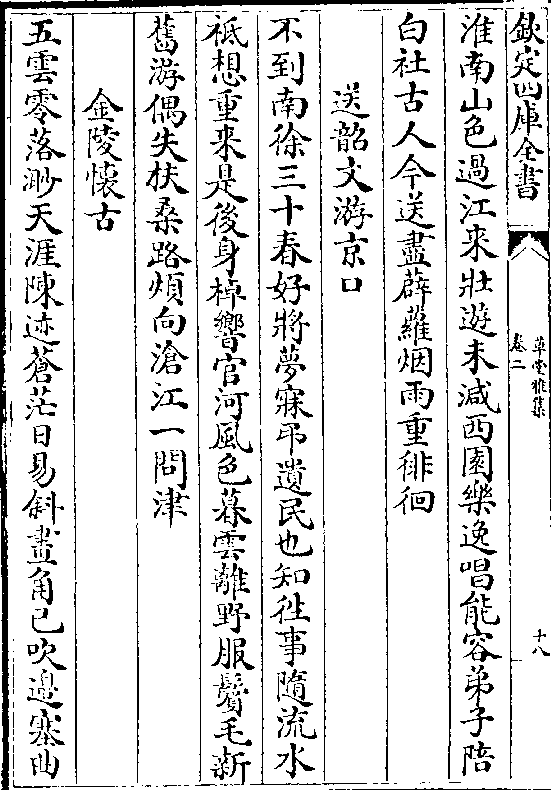 欽定四庫全書
草堂雅集
卷二
十八
淮南山色過江来壯遊未减西園樂逸唱能容弟子陪
白社古人今送盡薜蘿烟雨重徘徊
送韶文游京口
不到南徐三十春好將夢寐弔遺民也知徃事隨流水
衹想重来是後身棹響官河風色暮雲離野服鬢毛新
舊游偶失扶桑路煩向滄江一問津
金陵懷古
五雲零落渺天涯陳迹蒼茫日易斜畫角已吹邉塞曲